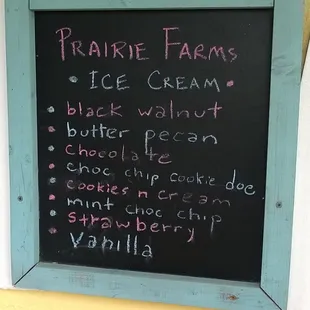 PRAIRIE FARMS
• ICE CREAM •
• black walnut
• butter pecan
• chocolate
• choc chip cookie doe
• cookies n cream
• mint choc chip
• strawberry
• vanilla